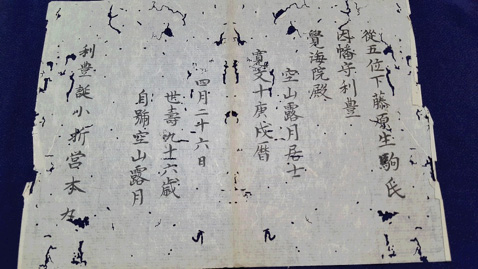 從五位下藤原生駒氏
因幡守利豊
覺海院殿
空山露月居士
寛文十庚戌暦
四月二十六日
世壽九十六歳
自号空山露月
利豊誕小折営本